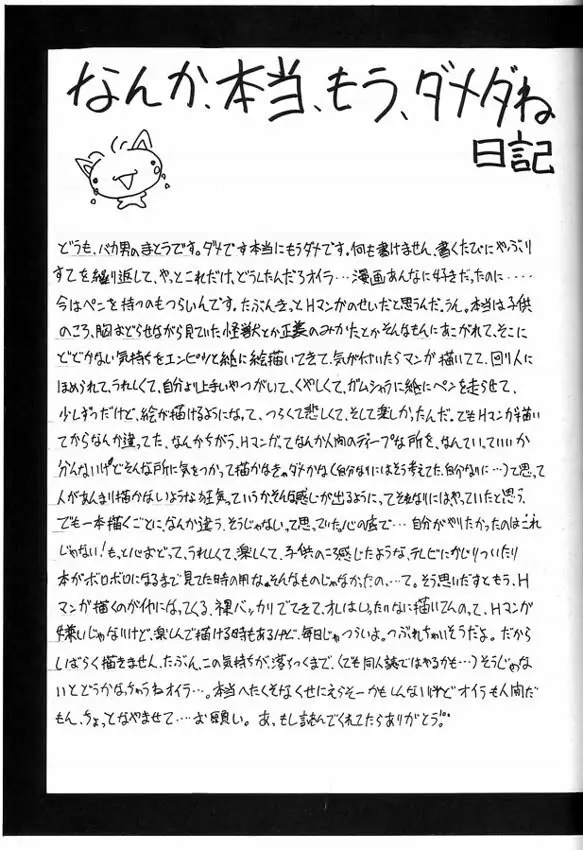 なんか、本当、もう、ダメダね
日記
どうも、バカ男のまとうです。ダメです本当にもうダメです。何も書けません、書くたびにやぶり
すてを繰り返して、やっとこれだけ、どうしたんだろオイラ…漫画あんなに好きだったのに‥‥
今はペンを持つのもつらいんです。たぶんきっとHマンガのせいだと思うんだ。うん。本当は子供
のころ、胸おどらせながら見ていた怪獣とか正義のみかたとかそんなもんにあこがれて、そこに
とどかない気持ちをエンピツと紙に絵描いてきて、気が付いたらマンガ描いてて、回り人に
ほめられて、うれしくて、自分より上手いやつがいて、くやしくて、ガムシャラに紙にペンを走らせて、
少しずつだけど、絵が描けるようになって、つらくて悲しくて、そして楽しかったんだ。でもHマンガ描い
てからなんか違ってた、なんかちがう、Hマンガってなんか人間のディープな所を、なんていっていいか
分んないけどそんな所に気をつかって描かなきゃダメかな(自分なりにはそう考えてた、自分なりに…)て思って
人があんまり描かないような狂気っていうか、そんな感じが出るようにってそれなりにはやっていたと思う、
でも一本描くごとに、なんか違う、そうじゃないって思っていた。心の底で…自分がやりたかったのはこれ
じゃない!もっと心おどって、うれしくて、楽しくて、子供のころ感じたような、テレビにかじりついたり
本がボロボロになるまで見てた時の用な。そんなものじゃなかったの…って。そう思いだすともう、H
マンガ描くのがイヤになってくる、裸バッカリでてきて、オレはしたいなに描いてんのって、Hマンガ
嫌いじゃないけど、楽しんで描ける時もあるけど、毎日じゃつらいよ。つぶれちゃいそうだよ。だから
しばらく描きません、たぶん、この気持ちが、落ちつくまで、(でも同人誌ではやるかも…)そうじゃな
いとどうかなっちゃうねオイラ…。本当へたくそなくせにえらそーかもしんないけどオイラも人間だ
もん、ちょっとなやませて…お願い。あ、もし読んでくれてたらありがとう。